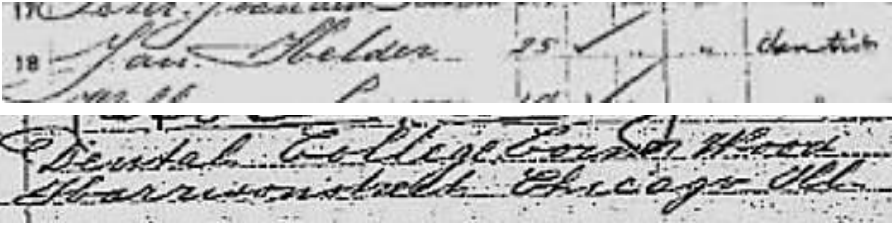 18 Jan Helder 25 " " dentist
Dental College Corner Wood
Harrisonstreet Chicago Ill